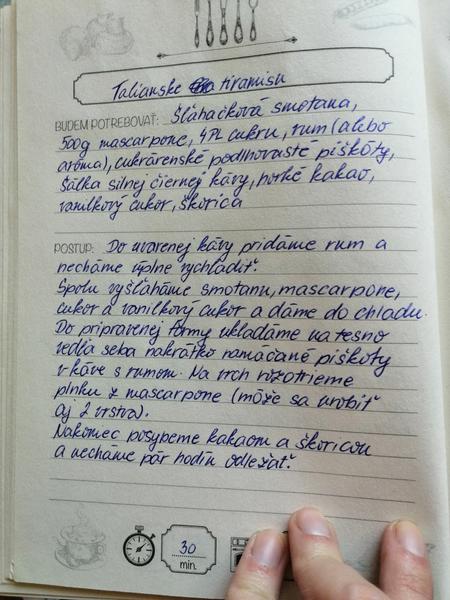 Talianske tiramisu
BUDEM POTREBOVAŤ: Šľahačková smotana,
500g mascarpone, 4PL cukru, rum (alebo
aróma), cukrárenské podlhovasté piškóty,
šálka silnej čiernej kávy, horké kakao,
vanilkový cukor, škorica
POSTUP: Do uvarenej kávy pridáme rum a
necháme úplne vychladiť.
Spolu vyšľaháme smotanu, mascarpone,
cukor a vanilkový cukor a dáme do chladu.
Do pripravenej formy ukladáme na tesno
vedľa seba nakrátko namáčané piškóty
v káve s rumom. Na vrch rozotrieme
plnku z mascarpone (môže sa urobiť
aj 2 vrstva).
Nakoniec posypeme kakaom a škoricou
a necháme pár hodín odležať.
30
min.